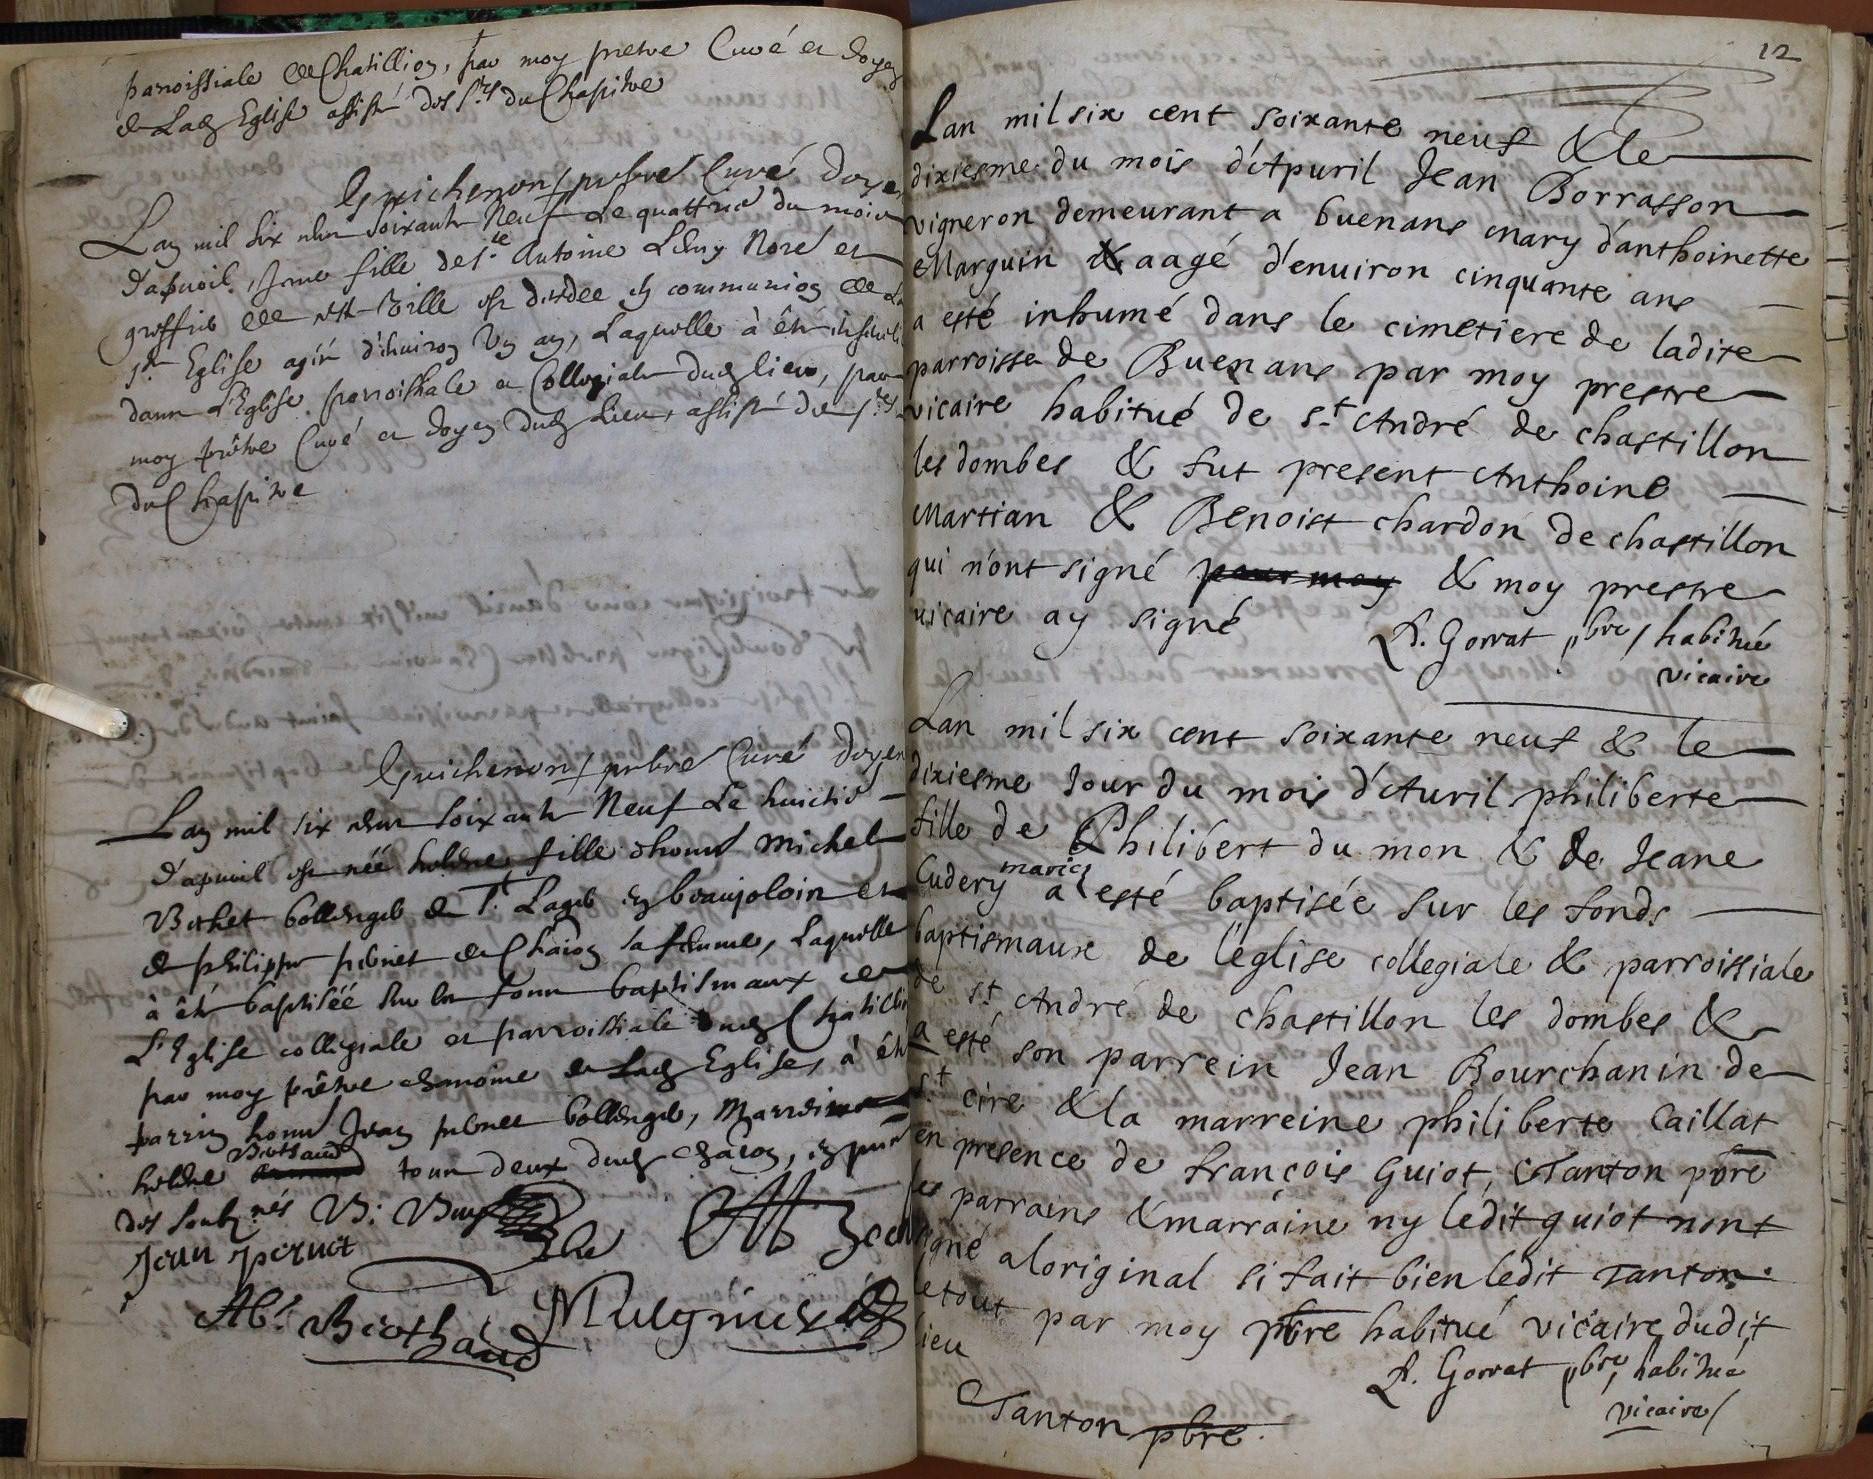 parroissiale de Chatillion, par moy pretre Curé et doyen
de Lad Eglise assisté des Srs du Chapitre
Guichenon / prbre Curé Doyen
Lan mil six cens soixante Neuf Le quattrie du mois
d'apvril, fille de Sr Antoine Noré et
greffier de ville est decedee en communion de La
Ste Eglise agée d'enuiron Un an, Laquelle à êté
dans L'Eglise parroissiale et Collegiale dud lieu, par
moy prêtre Curé et doyen dud Lieu, assisté des Srs
du Chapitre
Guichenon / prbre Curé Doyen
Lan mil six cens soixante Neuf Le huictie
d'apvril est née fille d'honn Michel
Bothet de St Lager en beaujolois et
de philippe de sa femme, Laquelle
à êté baptisée sur les fonts baptismaux de
L'Eglise collegiale et parroissiale dud Chatillion
par moy prêtre chanoine de Lad Eglise, à êté
parrin honn Jean
tous deux dud en
des soubznés
Jean pernet
12
Lan mil six cent soixante neuf & le
dixiesme du mois d'Apuril Jean Borrasson
vigneron demeurant a buenans mary d'anthoinette
Marguin & aagé d'enuiron cinquante ans
a esté inhumé dans le cimetiere de ladite
parroisse de Buenans par moy prestre
vicaire habitué de St André de chastillon
les dombes & fut present Anthoine
Martian & Benoist chardon de chastillon
qui n'ont signé pour moy & moy prestre
uicaire ay signé
Gorrat pbre / habitué
vicaire
Lan mil six cent soixante neuf & le
dixiesme Jour du mois d'Auril philiberte
fille de Philibert du mon & de Jeane
Cudery mariés a esté baptisée sur les fonds
baptismaux de l'eglise collegiale & parroissiale
de St André de chastillon les dombes &
a esté son parrein Jean Bourchanin de
St cire & la marreine philiberte Caillat
en presence de françois Guiot, Tanton pbre
les parrains & marraine ny ledit guiot n'ont
signé a loriginal si fait bien ledit Tanton
le tout par moy pbre habitué vicaire dudit
lieu
Gorrat pbre, habitué
vicaire /
Tanton pbre.